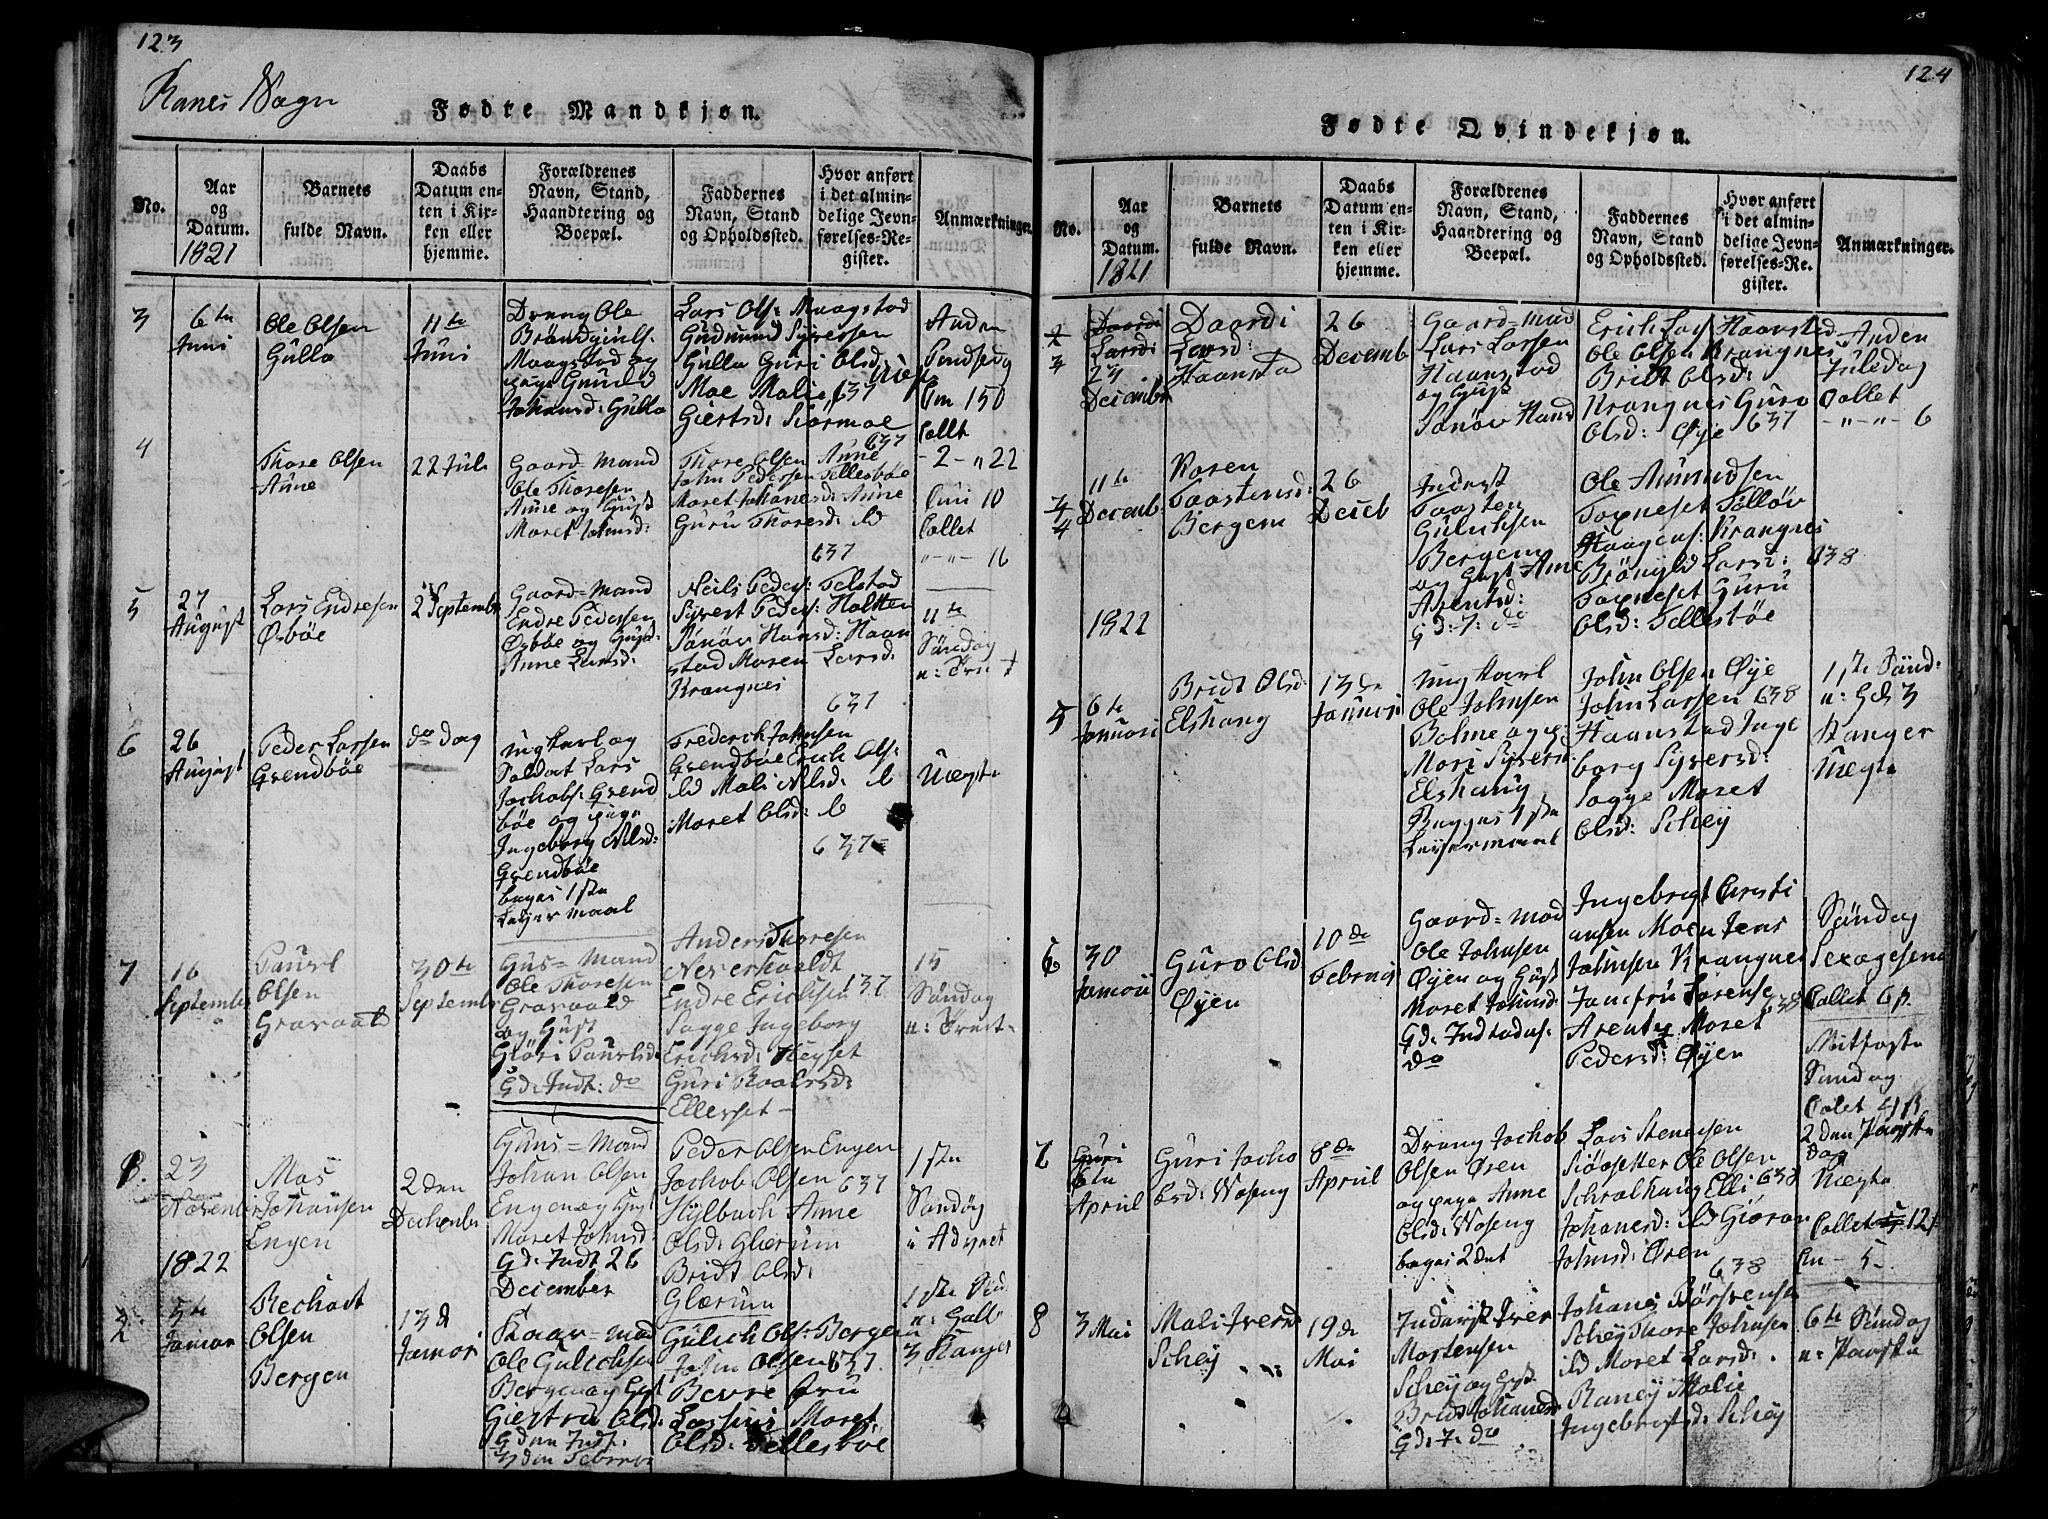 123
Ranes Sogn
Fødte Mandkjøn.
No.
Aar
og
Datum.
1821
Barnets
fulde Navn.
Daabs
Datum en-
ten i Kir-
ken eller
hjemme.
Forældrenes
Navn, Stand,
Haandtering og
Boepæl.
Faddernes
Navn, Stand
og Opholdssted.
Hvor anført
i det almin-
delige Jevn-
førelses-Re-
gister.
Anmærkninger.
3
6te
Juni
Ole Olsen
Gulla
11te
Juni
Dreng Ole
Maagstad og
pige Gunild
Johansd: Gulla
Lars Ols: Maagstad
Gudmund Syversen
Gulla Guri Olsd
Moe Malie 637
Giertsd: Siørmoe
Anden
Pindsedag
150
Collet
4
Thore Olsen
Aune
22 Juli
Gaard-Mand
Ole Thoresen
Aune og Gust
Maret Johnsd:
Thore Olsen Aune 637
John Pedersen Tellesbøe
Maret Johanesd: Aune
Guru Thoresd: ibd
637
-2-"22
10
Collet
"-"- 16
5
27
August
Lars Endresen
Øsbøe
2 Septembr
Gaard-Mand
Endre Pedersen
Øsbøe og Gust
Anne Larsd:
Neils Peders: Telstad
Syvert Peders: Holten
Sanøv Hansd: Haan
stad Maren Larsd:
Krangnes
637
11te
Søndag
n: Trint
6
26
August
Peder Larsen
Grendbøe
do dag
Ungkarl og
Soldat Lars
Jachobs: Grend
bøe og pige
Ingeborg Nilsd:
Grendbøe
begges 1ste
Leyermaal
Frederich Johnsen
Grendbøe Erich Ols:
ibd Mali Nilsd: ib
Maret Olsd: ib
637
Uægte
7
16
Septembr
Paurl
Olsen
Gravaat
30te
Septembr
Gus-Mand
Ole Thoresen
Gravaat
og Gust
Gløri Paurlsd:
Gd: Indt: do
Anders Thoresen
Neverhaldt
Endre Erichsen 637
Sagge Ingeborg
Erichsd: Heyset
Guri Roalesd:
Ellerset
15
Søndag
n: Trint-
8.
23
November
Mas
Johansen
Engen
2den
Decbembr
Guus-Mand
Johan Olsen
Engen og Gust
Maret Johnsd:
Gd: Indt 26
December
Peder Olsen Engen
Jachob Olsen 637
Hylbach Anne
Olsd: Glærum
Bridt Olsd:
Glærum
1ste
Søndag
i Advent
1822
2
5te
Januar
Rechart
Olsen
Bergen
13d
Januari
Gaar-Mad
Ole Gulichsen
Bergen og Gust
Giertru Olsd:
Gden Indt:
3den Februar
Gulich Ols: Bergen
John Olsen 637
Bevre fru
Lossius Maret
Olsd: Tellesbøe
1ste Sønd
n: Galb
3 Stanger
124
Fødte Qvindekjøn.
No.
Aar
og
Datum.
1821
Barnets
fulde Navn.
Daabs
Datum en-
ten i Kir-
ken eller
hjemme.
Forældrenes
Navn, Stand,
Haandtering og
Boepæl.
Faddernes
Navn, Stand
og Opholdssted.
Hvor anført
i det almin-
delige Jevn-
førelses-Re-
gister.
Anmærkninger.
2
3
Daardi
Larsd:
23
Decembr
Daardi
Larsd:
Haansta
26
Decemb
Gaard-Mad
Lars Larsen
Haanstad
og Gust
Sanøv Hansd
Erich Lars Haanstad
Ole Olsen Krangnes
Bridt Olsd:
Krangnes Guro
Olsd: Øye 637
Anden
Juledag
Collet
-"-"- 6
3
4
11te
Decemb
Karen
Taastensd:
Bergem
26
Deceb
Inderst
Taasten
Gulichsen
Bergem
og Gust Anne
Arentsd:
Gd: 7: do
Ole Amundsen
Toxneset Solløv
Haagens: Krangnes
Brønyld Larsd: 638
Toxneset Guru
Olsd: Tellesbøe
1822
5
6te
Januari
Bridt Olsd:
Elshaug
13de
Januari
Ungkarl
Ole Johnsen
Bolme og pi
Mari Syversd
Elshaug
Begges 1ste
Leyermaal
John Olsen Øye
John Larsen 638
Haanstad Inge
borg Syversd:
Sagge Maret
Olsd: Schey
1ste Sønd:
n: Gd: 3
Stanger
Uægte
6
30
Januii
Guro Olsd
Øyen
10de
Februari
Gaard-Mad
Ole Johnsen
Øyen og Gust
Maret Johnsd:
Gd: Indtadus:
do
Ingebrigt Christi
ansen Moen Jens
Johnsen Krangnes
Jomfru Sørense 638
Arentz Maret
Pedersd: Øyen
Søndag
Sexagesima
Collet 6 ß
Mitfaste
Søndag
Colet 4 ß
7
Guri
6te
April
Guri Jacho
bsd: Vaseng
8de
April
Dreng Jachob
Olsen Øren
og pige Anne
Olsd: Vaseng
begges 2det
Lars Stenersen
Siøasetter Ole Olsen
Schralhaug Elli 638
Johanesd: ibd Gioran
Johnsd: Øren
638
2den Paaske
Dag
Uægte
Collet 12 ß
En - 5-
8
3 Mai
Mali Iversd
Schey
19de
Mai
Inderst Iver
Mortensen
Schey og Gust
Bridt Johansd
Gd: 7: do
Johanes Børresen
Schey Thore Johnsen
ibd Maret Larsd:
Raney Malie
Ingebrigtsd: Schey
6te Søndag
n: Paaske